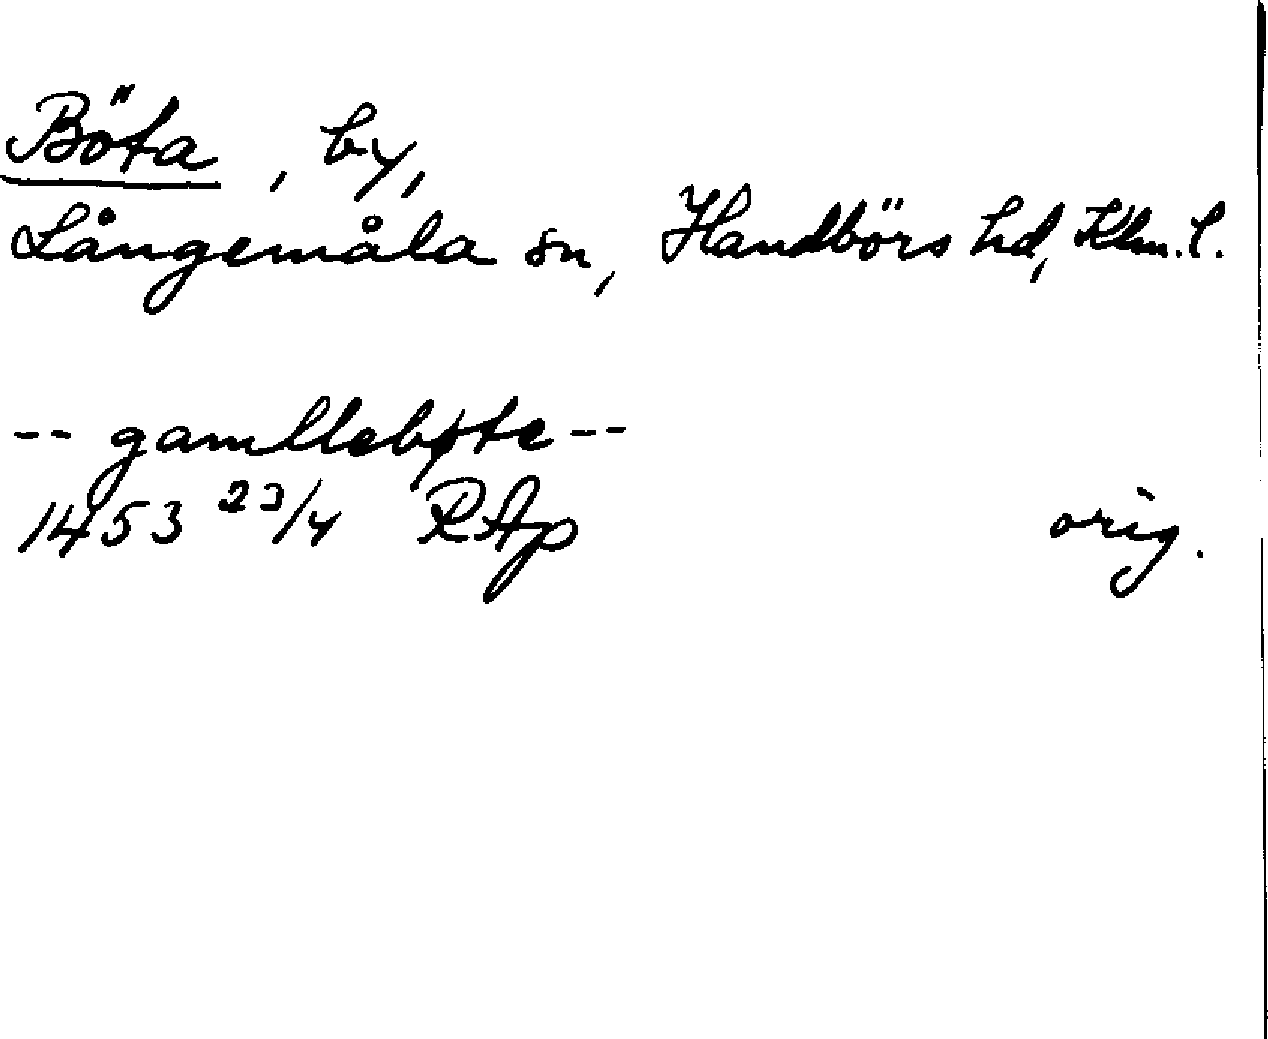 Böta, by,
Långemåla sn, Handbörs hd, Klm. l.
-- gamllebøte --
1453 23/4 RAp orig.